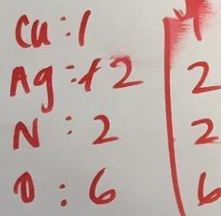 Cu : 1 | 1
Ag : 2 | 2
N : 2 | 2
O : 6 | 6